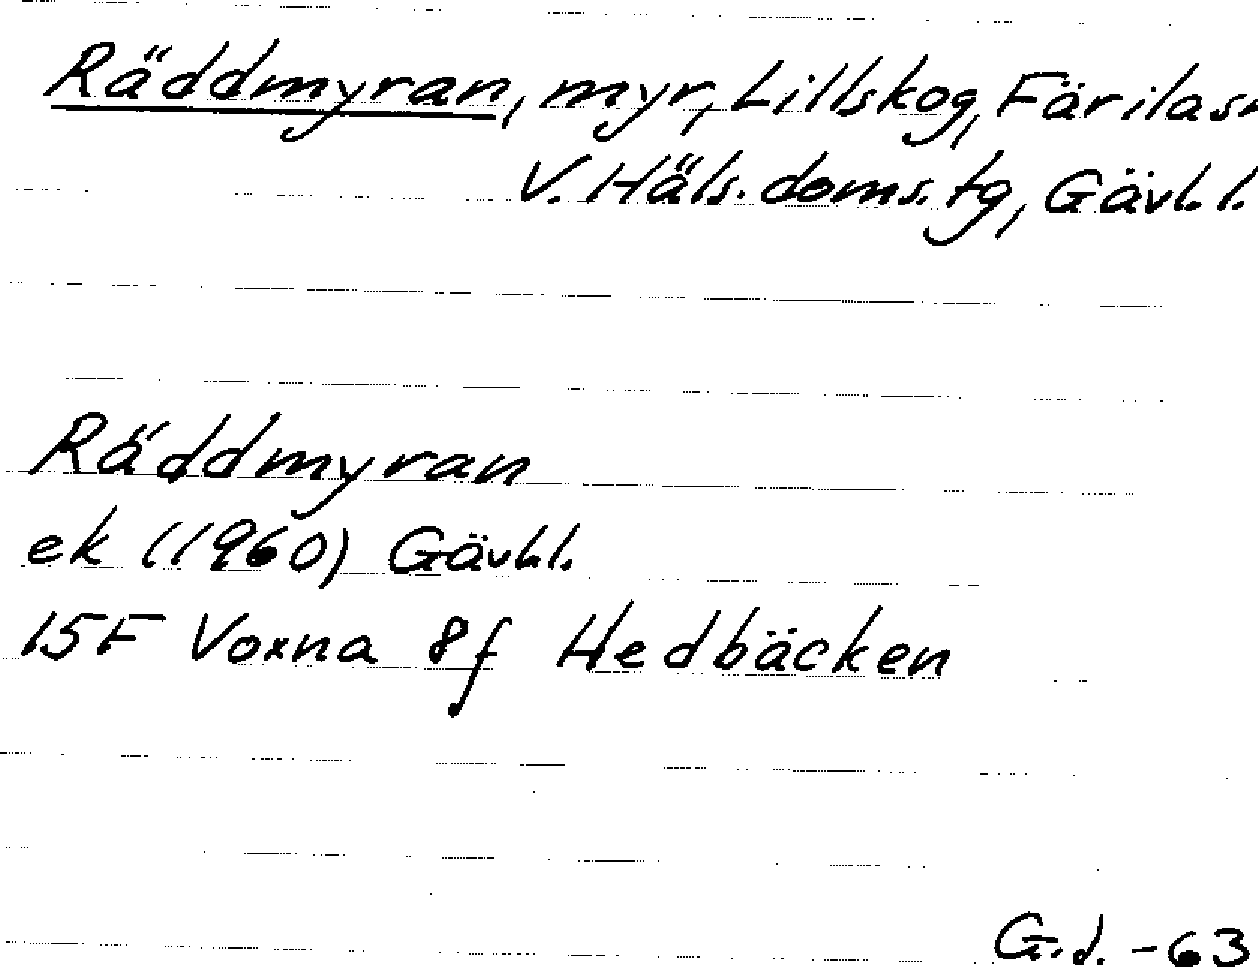 Räddmyran, myr, Lillskog, Färilasn
V. Häls. doms. tg, Gävl. l.
Räddmyran
ek (1960) Gävl.l.
15F Voxna 8f Hedbäcken
G.d. -63